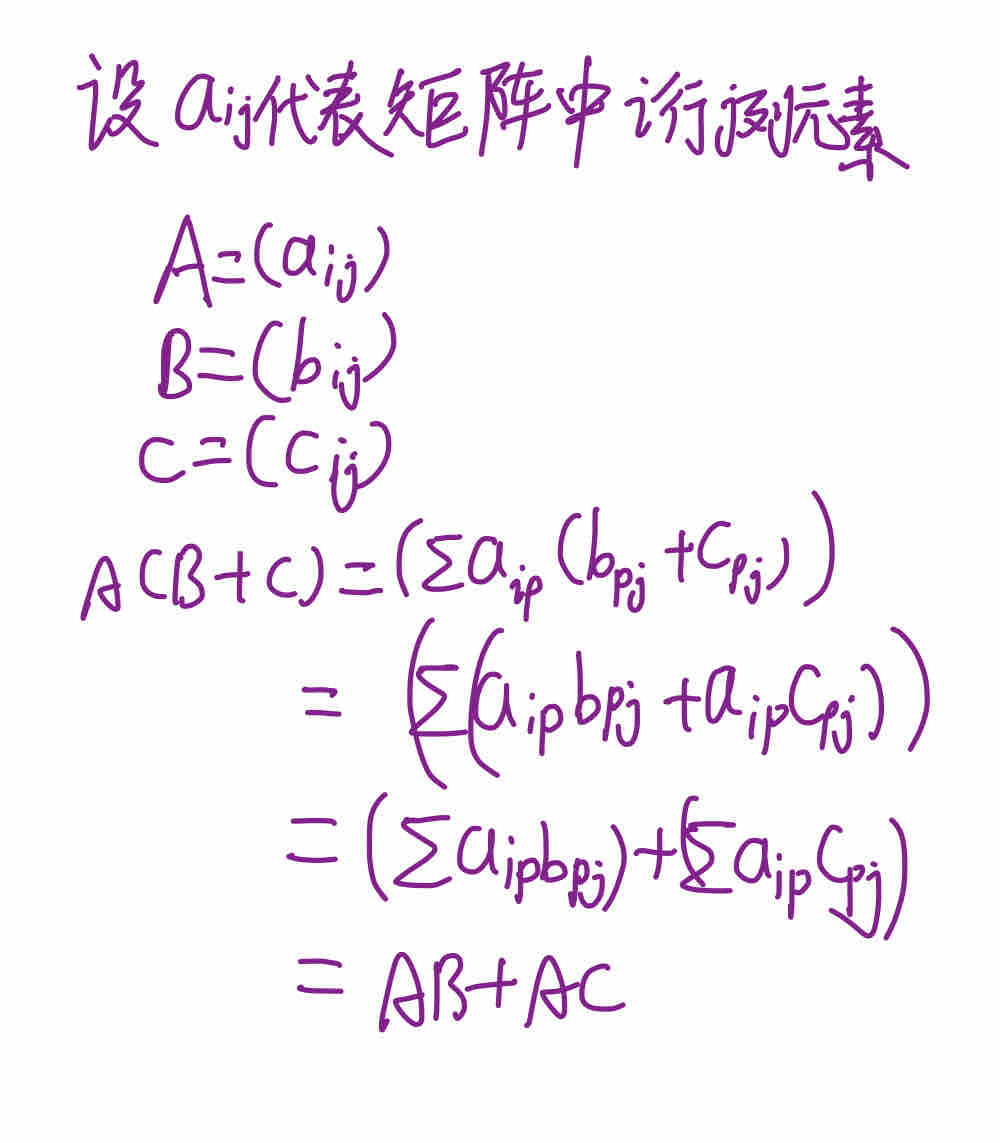 设 aij代表矩阵中i行j列元素
A=(aij)
B=(bij)
C=(cij)
A(B+C)=(∑aip(bpj+Cpj))
=(∑(aipbpj+aipCpj))
=(∑aipbpj)+(∑aipCpj)
=AB+AC